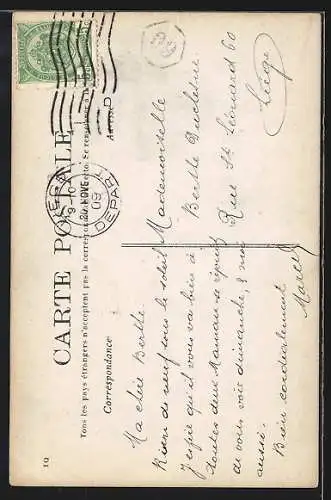 CARTE POSTALE
Tous les pays étrangers n'acceptent pas la correspondance au recto. Se renseigner à la
Correspondance
Adresse
LIEGE
9-10
NOVE
09
DEPART
Ma chère Berthe
Rien de neuf sous le soleil
J'espère qu'il vous va bien à
toutes deux. Maman se réjouit
de vous voir dimanche, & moi
aussi.
Bien cordialement
Marcel
Mademoiselle
Berthe
Rue St Léonard 60
Liège
19